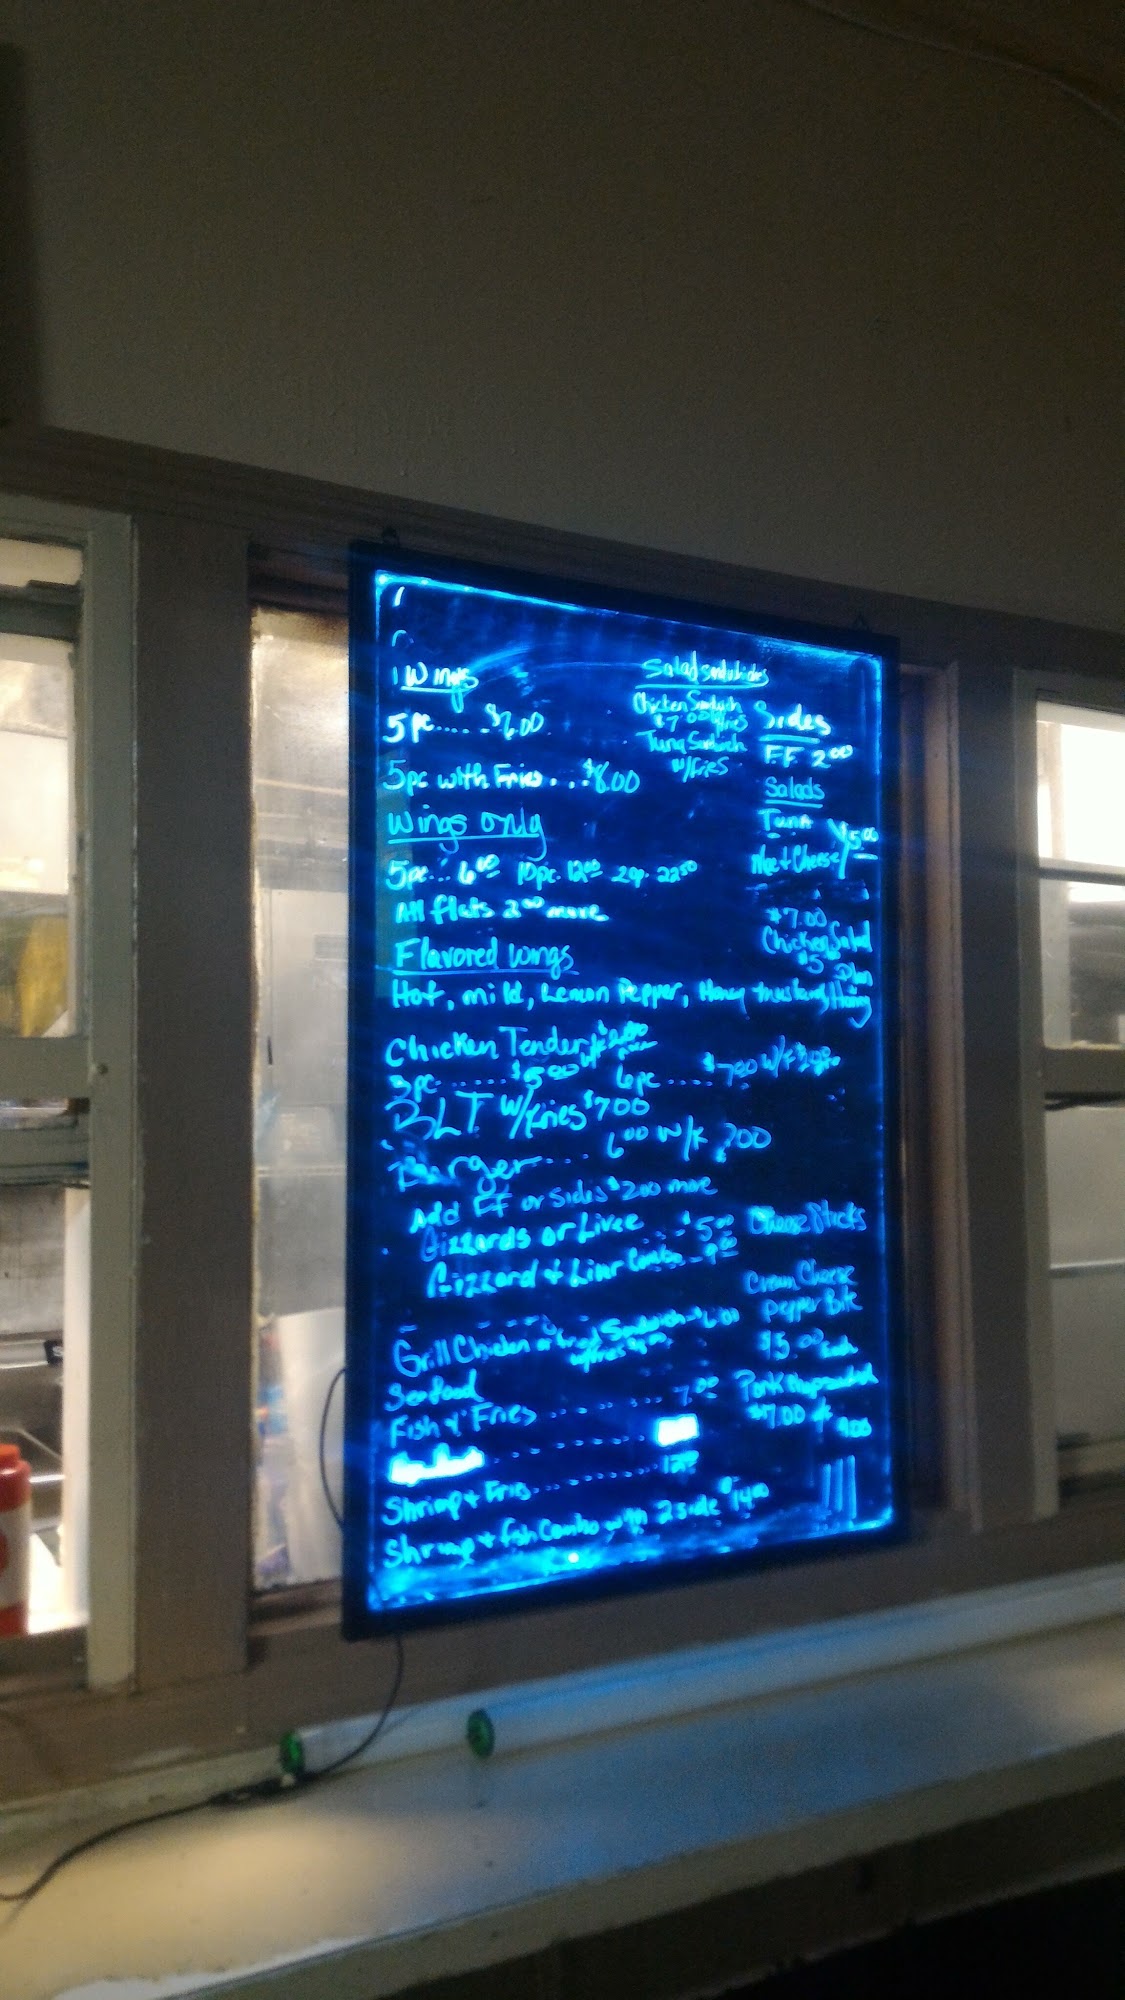 Wings
5pc..... $6.00
5pc with Fries... $8.00
Wings only
5pc... 6.00 10pc. 12.00 20p. 22.50
All flats 2.00 more
Flavored wings
Hot, mild, Lemon Pepper, Honey
Chicken Tender
3pc....... $5.00 6pc.... $7.00
BLT w/Fries $7.00
Burger.... 6.00 w/F
Add FF or Sides $2.00 more
Gizzards or Livee $5.00
Gizzard + Liver Combo 9.00
Grill Chicken or Fried Sandwich $6.00
Seafood
Fish & Fries ........... 7.00
Shrimp + Fries ........ 12.00
Shrimp + fish Combo with 2 side $14.00
Chicken Sandwich
$7.00 w/fries
Tuna Sandwich
w/fries
Sides
F.F. 2.00
Salads
Tuna
Mac + Cheese $5.00
$7.00
Chicken Salad
$5
Cheese Sticks
Cream Cheese
Pepper Bite
$5.00 Each
Pork
$7.00
9.00